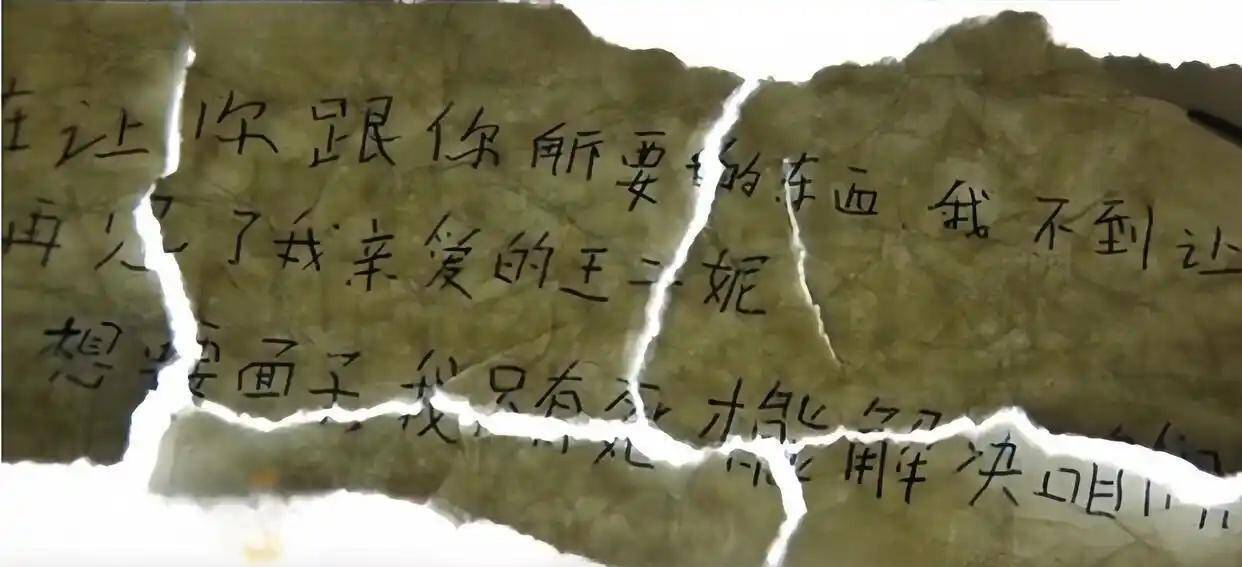 在让你跟你所要的东西我不到让
再见了我亲爱的王二妮
想要面子我只有死才能解决咱们